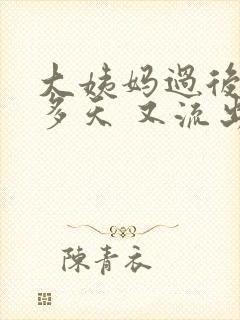 大姨妈過後
多天 又流出
陳青衣